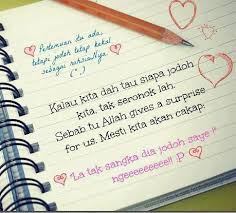 Pertemuan itu ada,
tetapi jodoh tetap kekal
sebagai rahsiaNya.
(".)
Kalau kita dah tau siapa jodoh
kita, tak seronok lah.
Sebab tu Allah gives a surprise
for us. Mesti kita akan cakap:
"La tak sangka dia jodoh saye !"
ngeeeeeeee!! :P